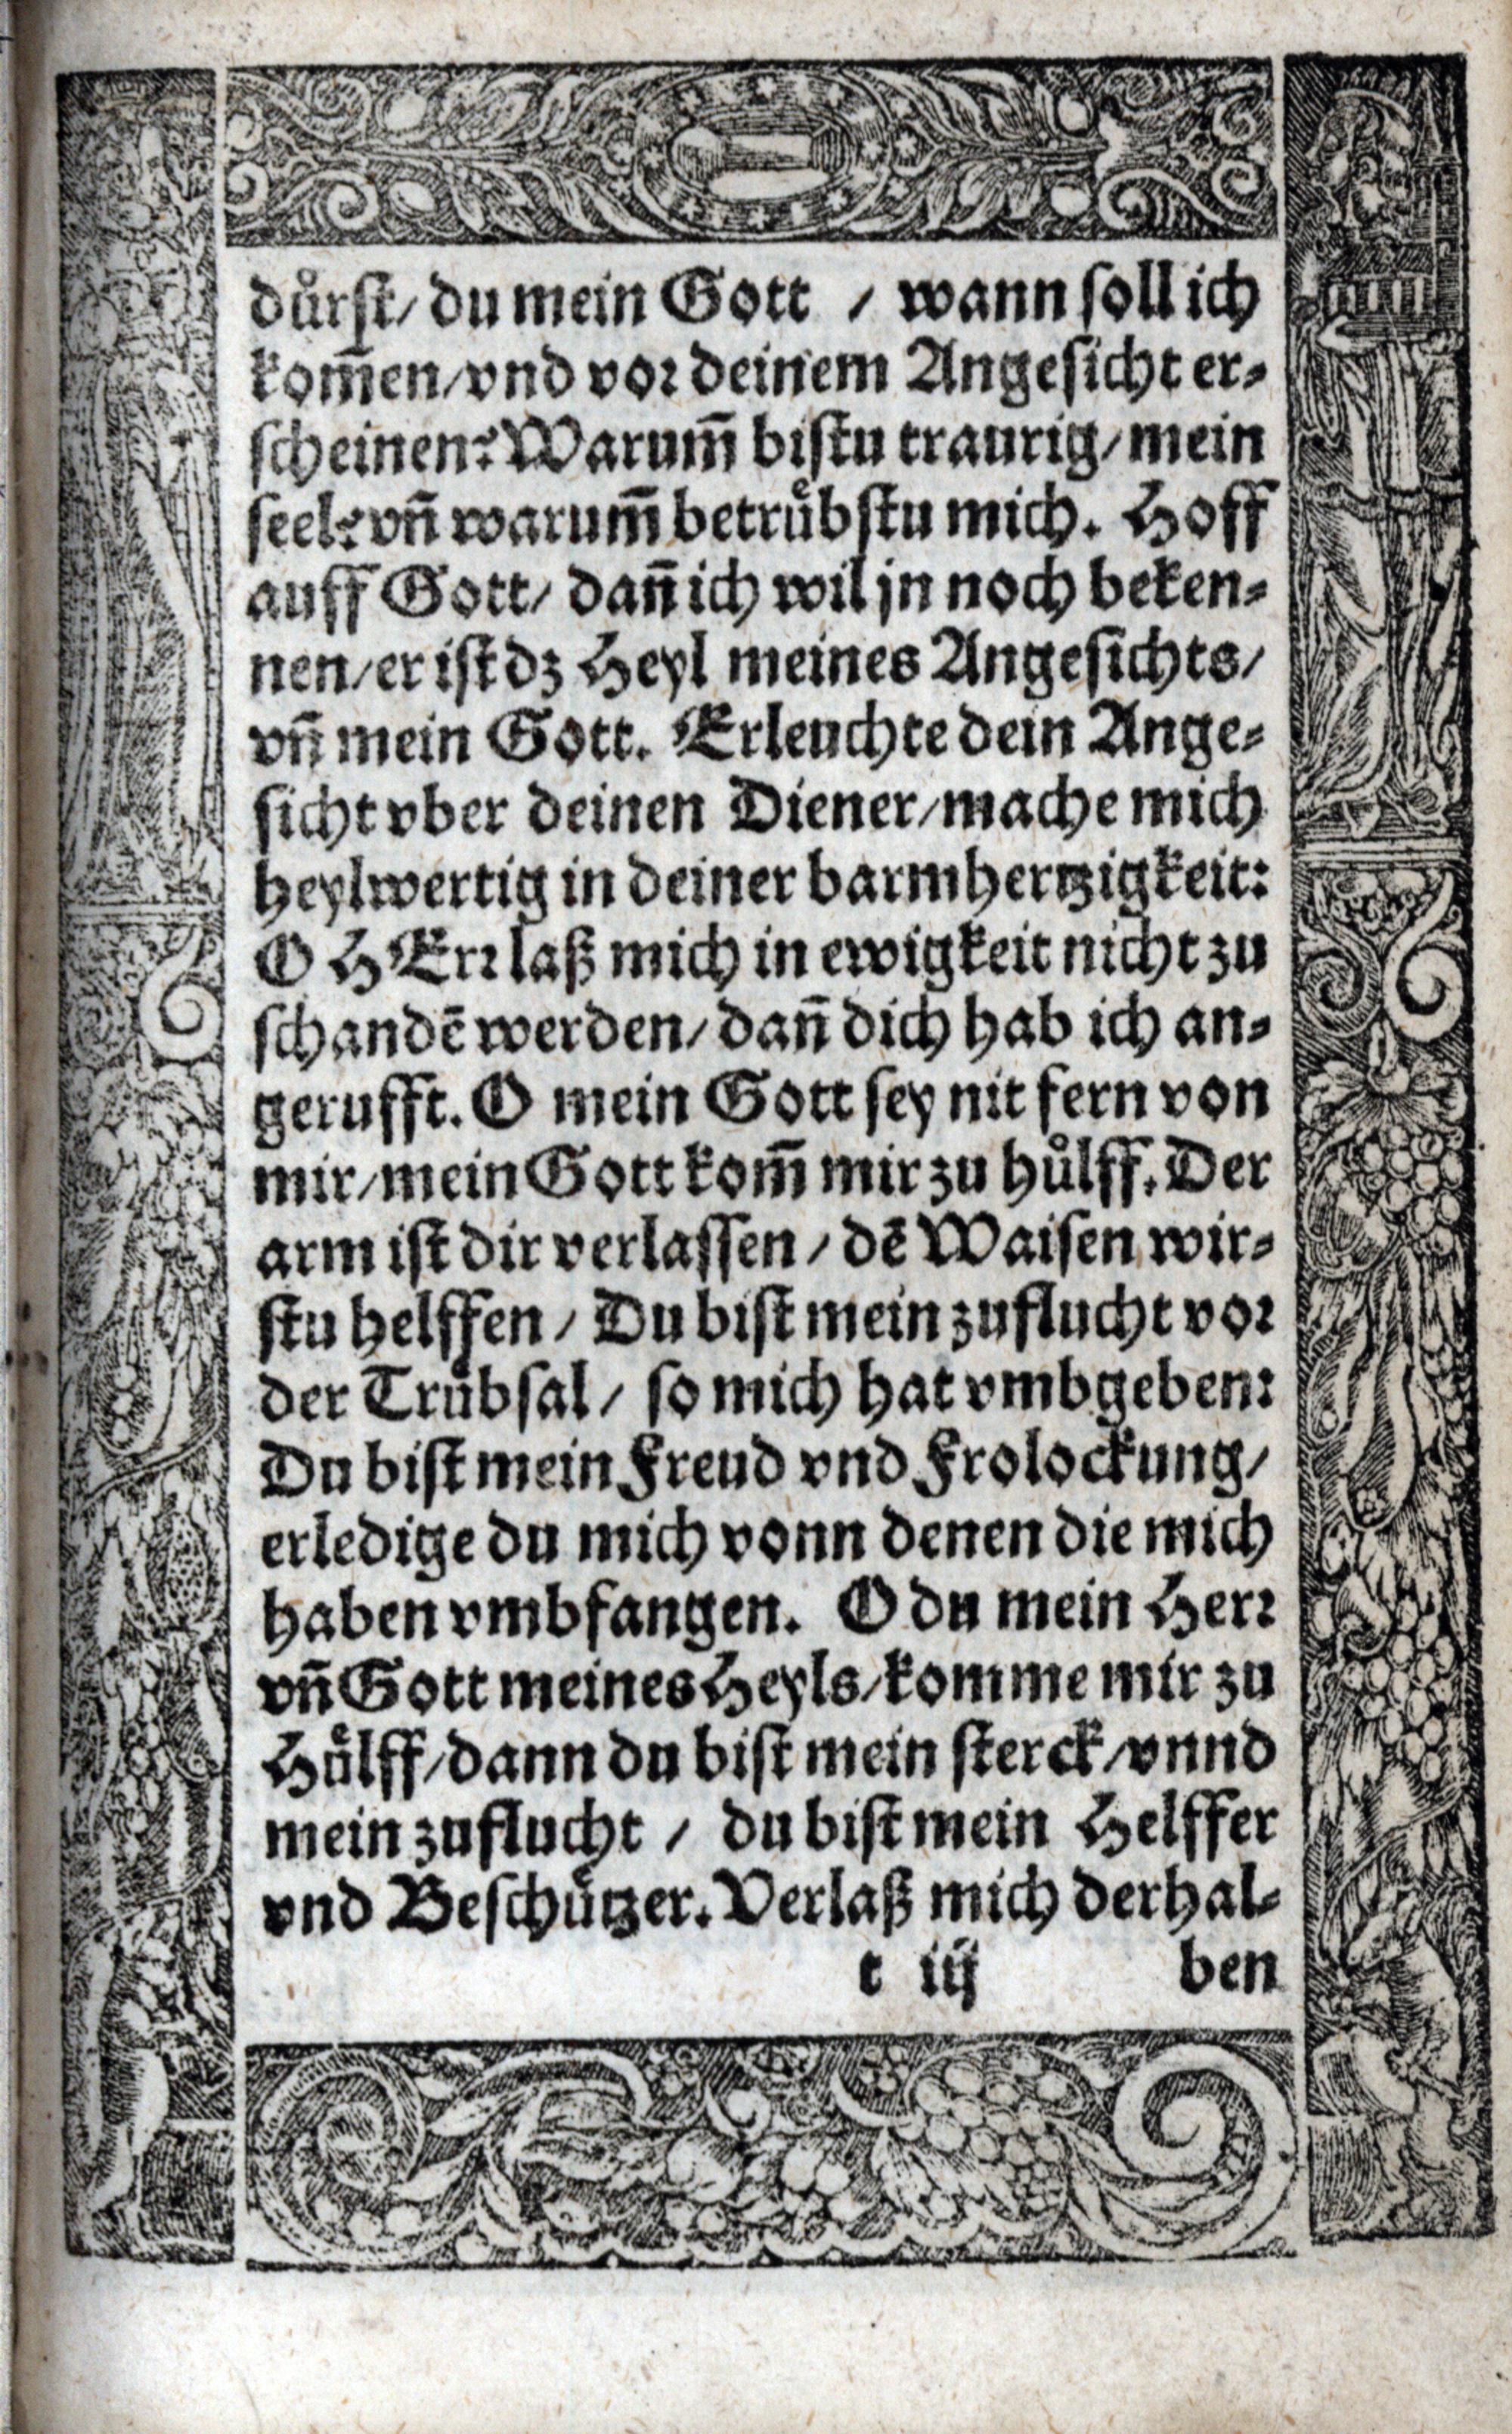 důrst/ du mein Gott / wann soll ich
kom̃en/ vnd vor deinem Angesicht er⸗
scheinen? Warum̃ bistu traurig/ mein
seel? vñ warum̃ betruͤbstu mich. Hoff
auff Gott/ dañ ich wil jn noch beken⸗
nen/ er ist dz Heyl meines Angesichts/
vñ mein Gott. Erleuchte dein Ange⸗
sicht vber deinen Diener/ mache mich
heylwertig in deiner barmhertzigkeit:
O HErr laß mich in ewigkeit nicht zu
schandē werden/ dañ dich hab ich an⸗
gerufft. O mein Gott sey nit fern von
mir/ mein Gott kom̃ mir zu hůlff. Der
arm ist dir verlassen / dē Waisen wir⸗
stu helffen / Du bist mein zuflucht vor
der Truͤbsal / so mich hat vmbgeben:
Du bist mein Freud vnd Frolockung/
erledige du mich vonn denen die mich
haben vmbfangen. O du mein Herr
vñ Gott meines Heyls/ komme mir zu
Huͤlff/ dann du bist mein sterck/ vnnd
mein zuflucht / du bist mein Helffer
vnd Beschuͤtzer. Verlaß mich derhal⸗
t iij ben